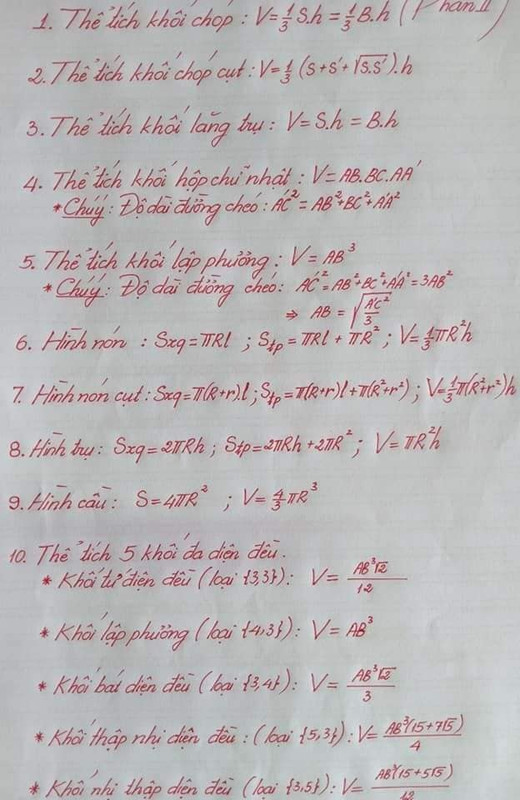 1. Thể tích khối chóp : V = 1/3 S.h = 1/3 B.h (Phần II)
2. Thể tích khối chóp cụt : V = 1/3 (S + S' + √S.S').h
3. Thể tích khối lăng trụ : V = S.h = B.h
4. Thể tích khối hộp chữ nhật : V = AB.BC.AA'
* Chú ý : Độ dài đường chéo : A'C² = AB² + BC² + A'A²
5. Thể tích khối lập phương : V = AB³
* Chú ý : Độ dài đường chéo : A'C² = AB² + BC² + A'A² = 3AB²
⇒ AB = √(A'C²/3)
6. Hình nón : Sxq = πRl ; Stp = πRl + πR² ; V = 1/3 πR²h
7. Hình nón cụt : Sxq = π(R+r)l ; Stp = π(R+r)l + π(R²+r²) ; V = 1/3 π(R²+r²)h
8. Hình trụ : Sxq = 2πRh ; Stp = 2πRh + 2πR² ; V = πR²h
9. Hình cầu : S = 4πR² ; V = 4/3 πR³
10. Thể tích 5 khối đa diện đều.
* Khối tứ diện đều (loại {3,3}) : V = AB³√2/12
* Khối lập phương (loại {4,3}) : V = AB³
* Khối bát diện đều (loại {3,4}) : V = AB³√2/3
* Khối thập nhị diện đều : (loại {5,3}) : V = AB³(15+7√5)/4
* Khối nhị thập diện đều (loại {3,5}) : V = AB³(15+5√5)/12